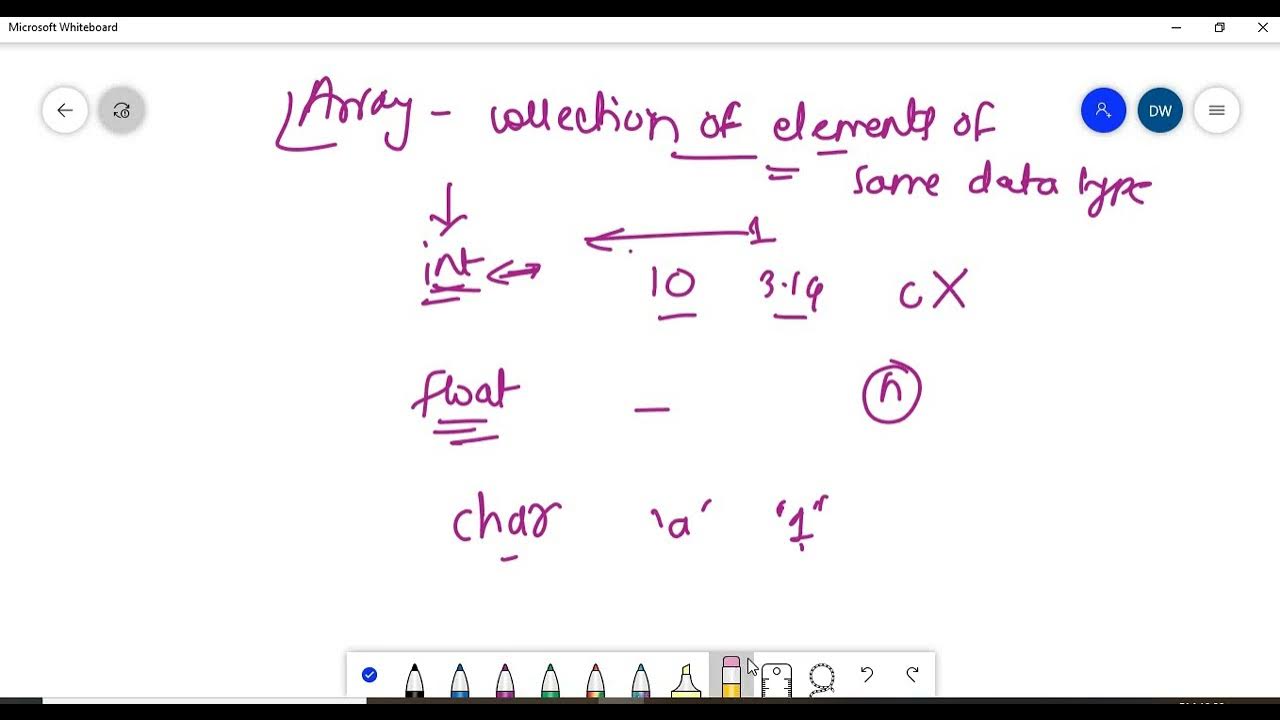 Microsoft Whiteboard
Array - collection of elements of
DW
same data type
1
int 10 3.14 c X
float - n
char 'a' "1"